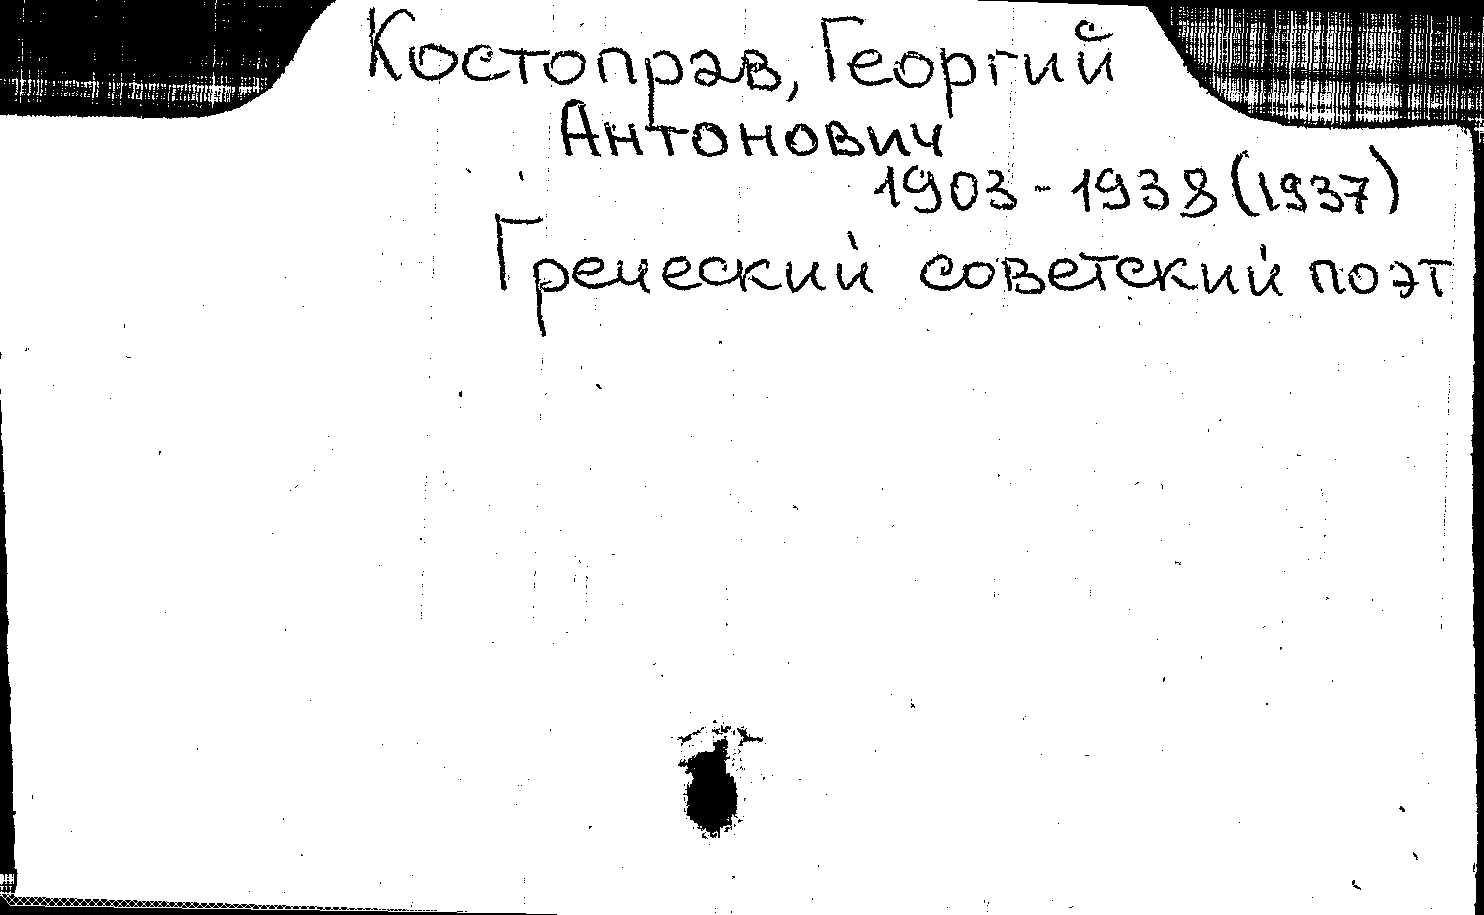 Костоправ, Георгий
Антонович
1903-1938 (1937)
Греческий советский поэт